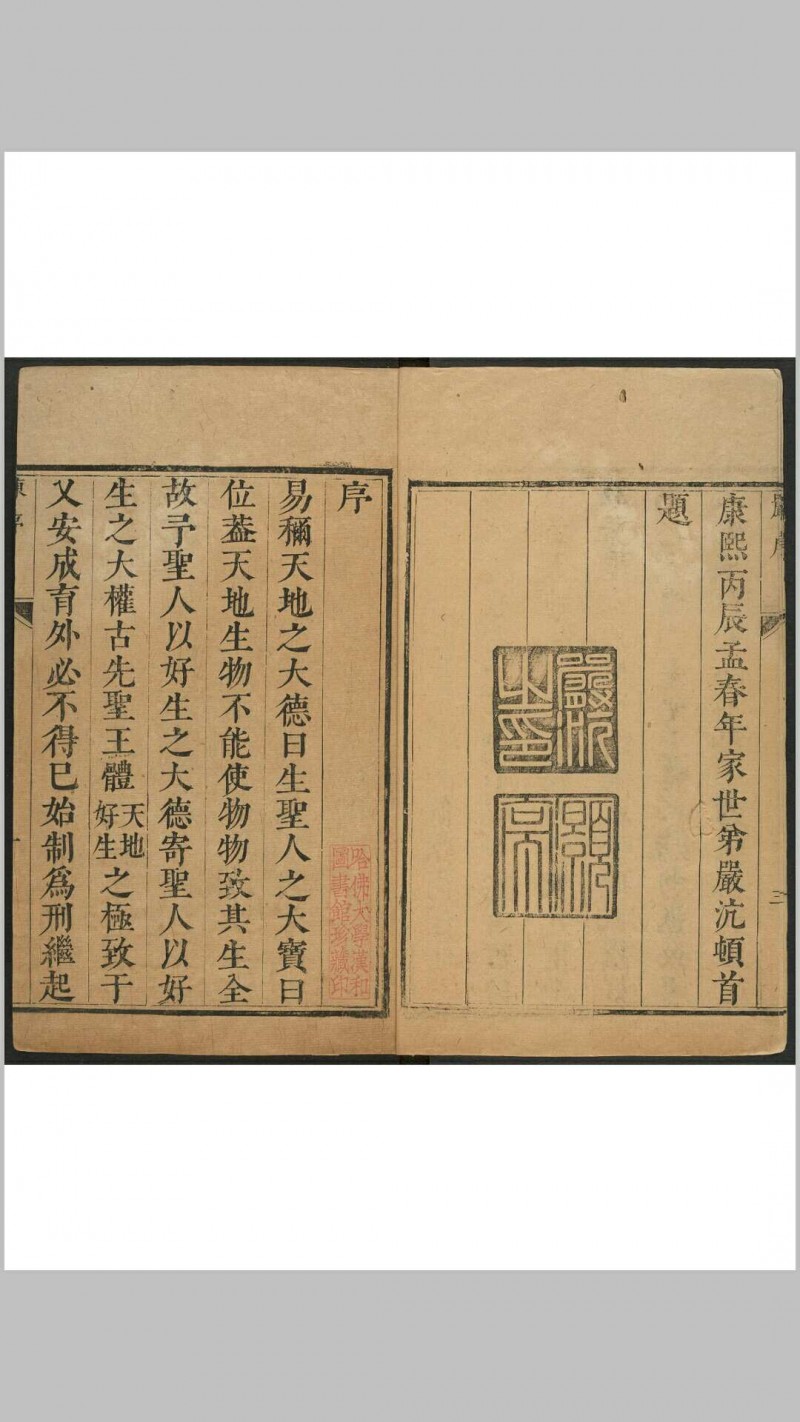 嚴序
康熙丙辰孟春年家世弟嚴沆頓首
題
三
嚴沆
之印
灝
亭
序
易稱天地之大德曰生聖人之大寶曰
位葢天地生物不能使物物致其生全
故予聖人以好生之大德寄聖人以好
生之大權古先聖王體天地好生之極致于
又安成育外必不得已始制爲刑繼起
哈佛大學漢和
圖書館珍藏印
陳序
一